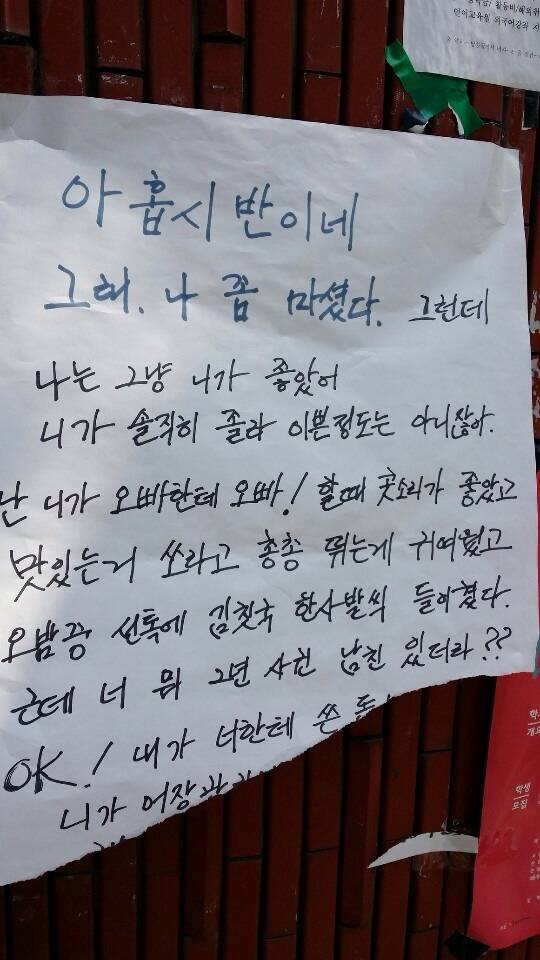 언어교육원 외국어강좌
아홉시 반이네
그래. 나 좀 마셨다. 그런데
나는 그냥 니가 좋았어
니가 솔직히 졸라 이쁜정도는 아니잖아.
난 니가 오빠한테 오빠! 할때 콧소리가 좋았고
맛있는거 쏘라고 총총 뛰는게 귀여웠고
오밤중 선톡에 김칫국 한사발씩 들이켰다.
근데 너 뭐 2년 사귄 남친 있더라??
OK! 내가 너한테 쓴 돈
니가 어장관리
학생
모집